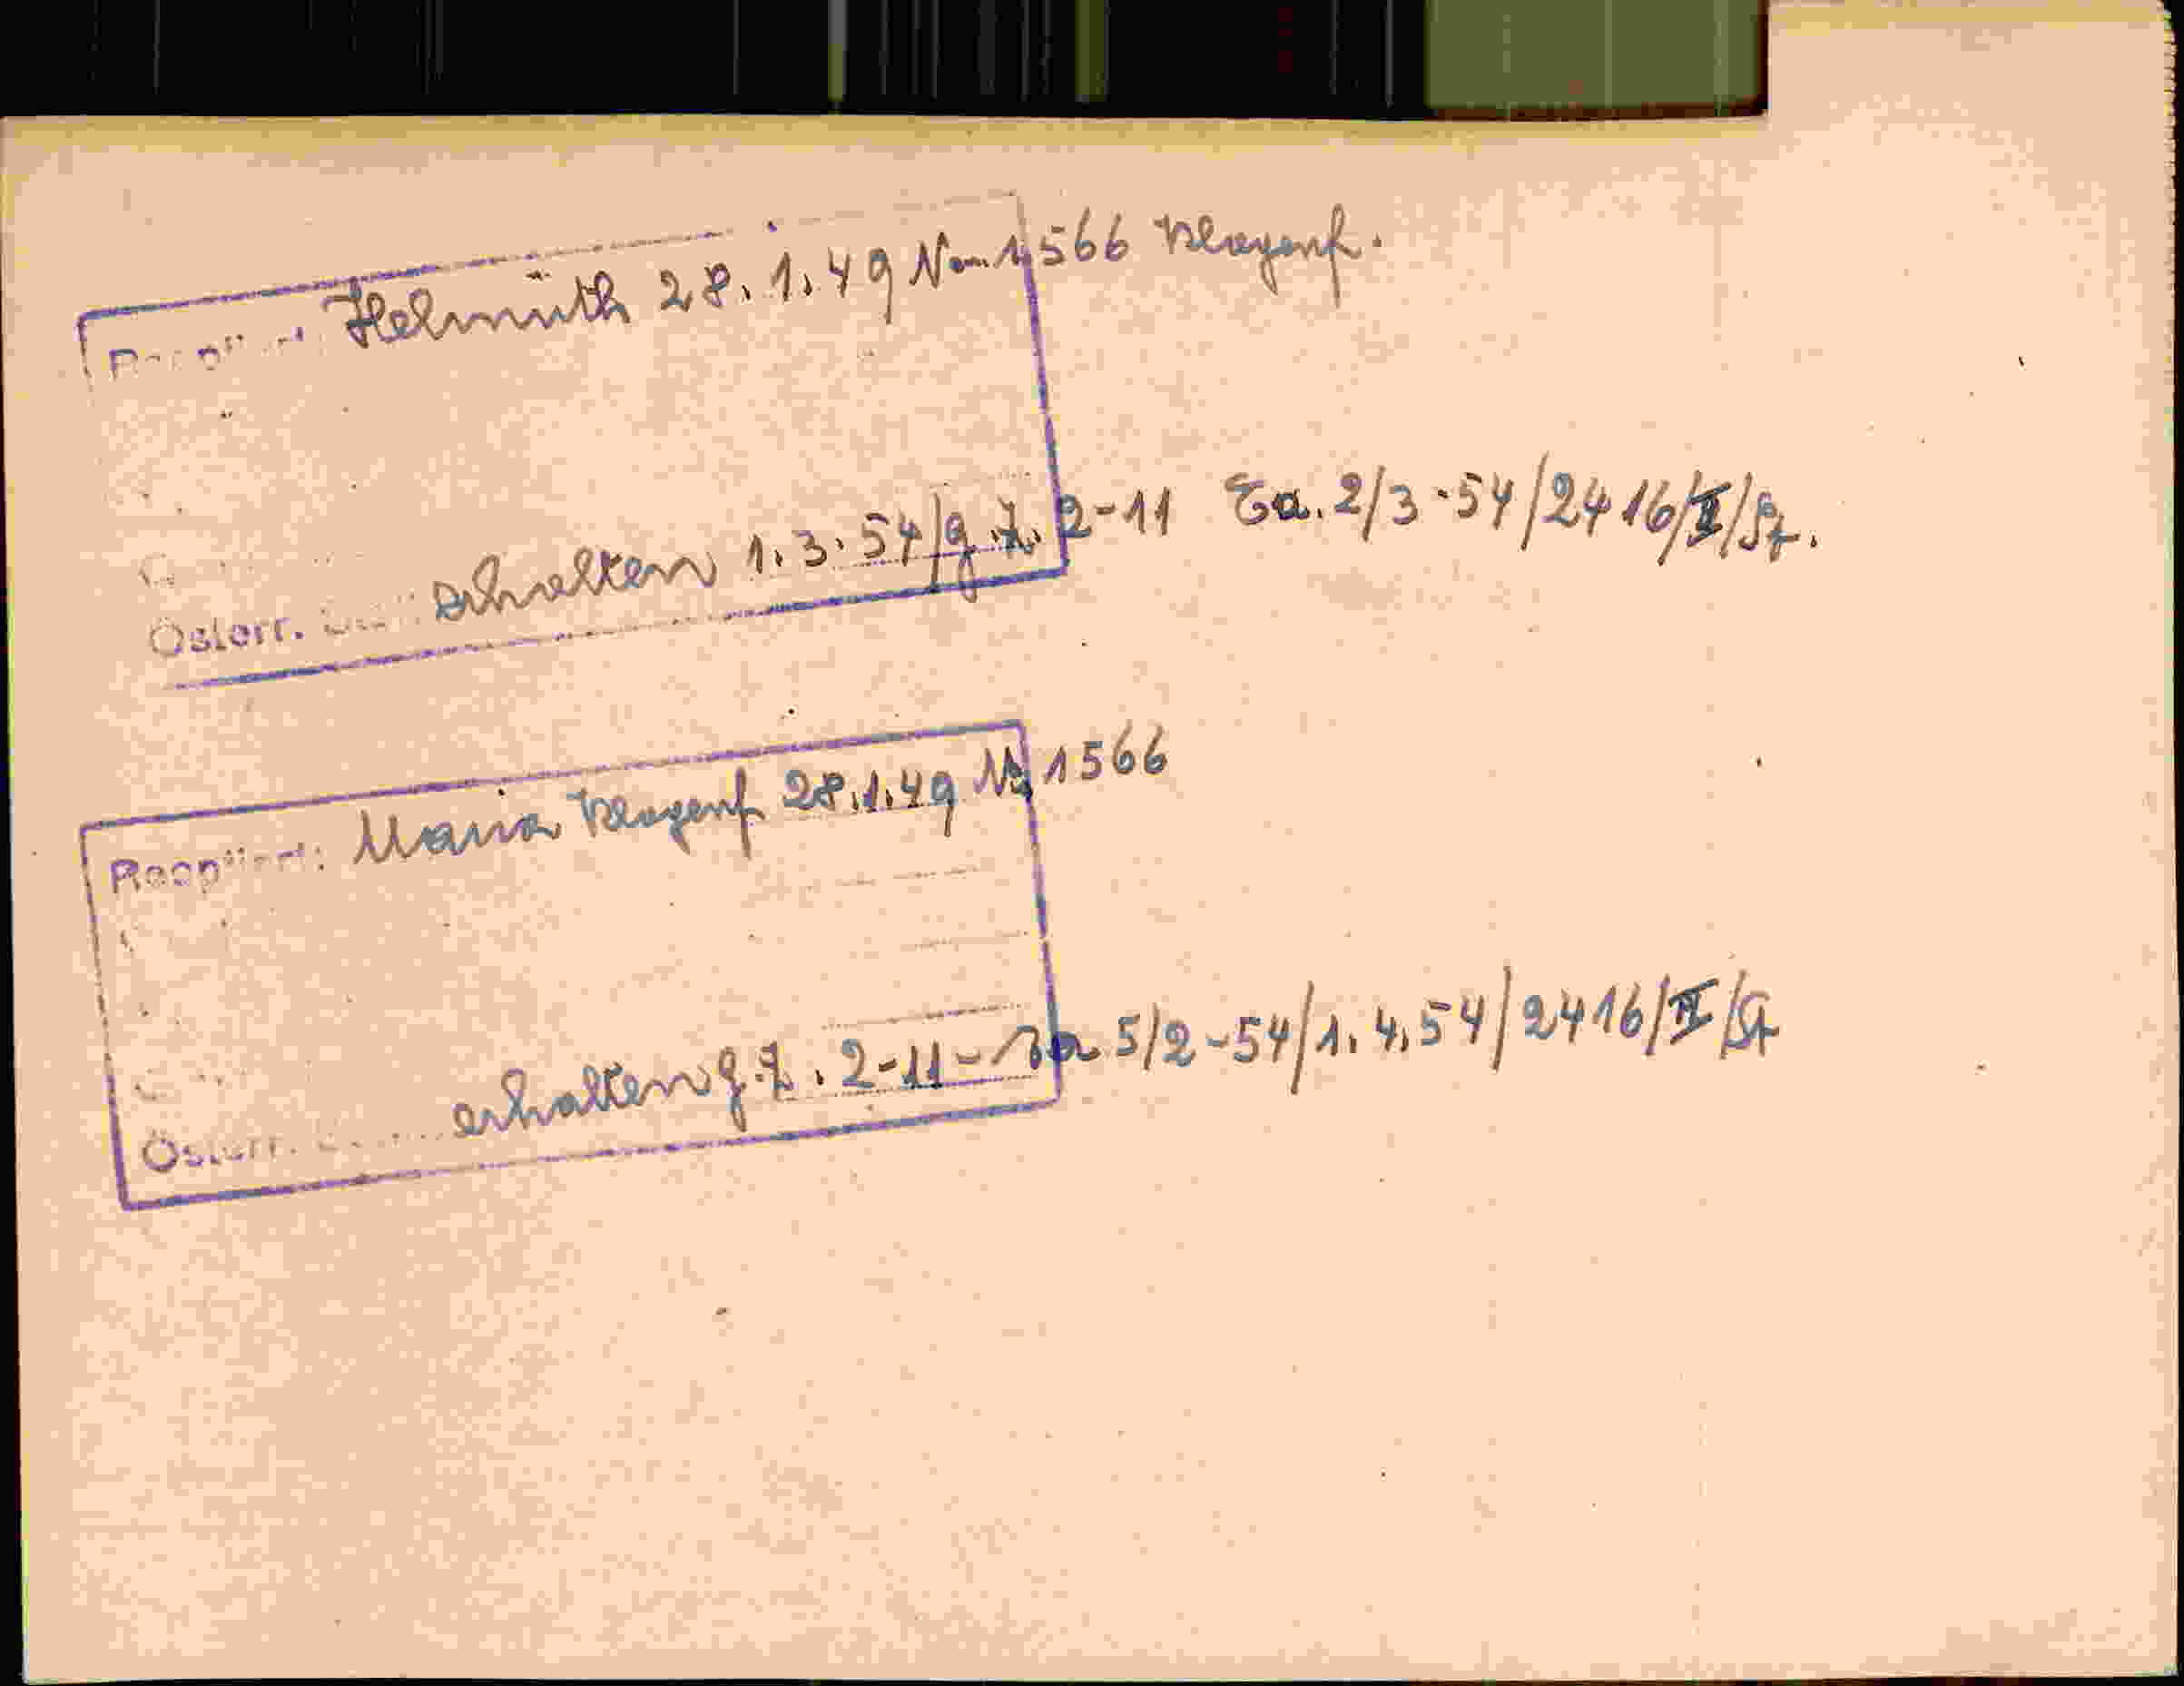 Helmuth 28.1.49 No. 1566 Klagenf.
Österr. erhalten 1.3.54/g.Z. 2-11 Ea. 2/3-54/2416/II/St.
Reoptiert: Maria Klagenf 28.1.49 No 1566
Österr. erhalten g.Z. 2-11- 5/2-54/1.4.54/2416/II/St